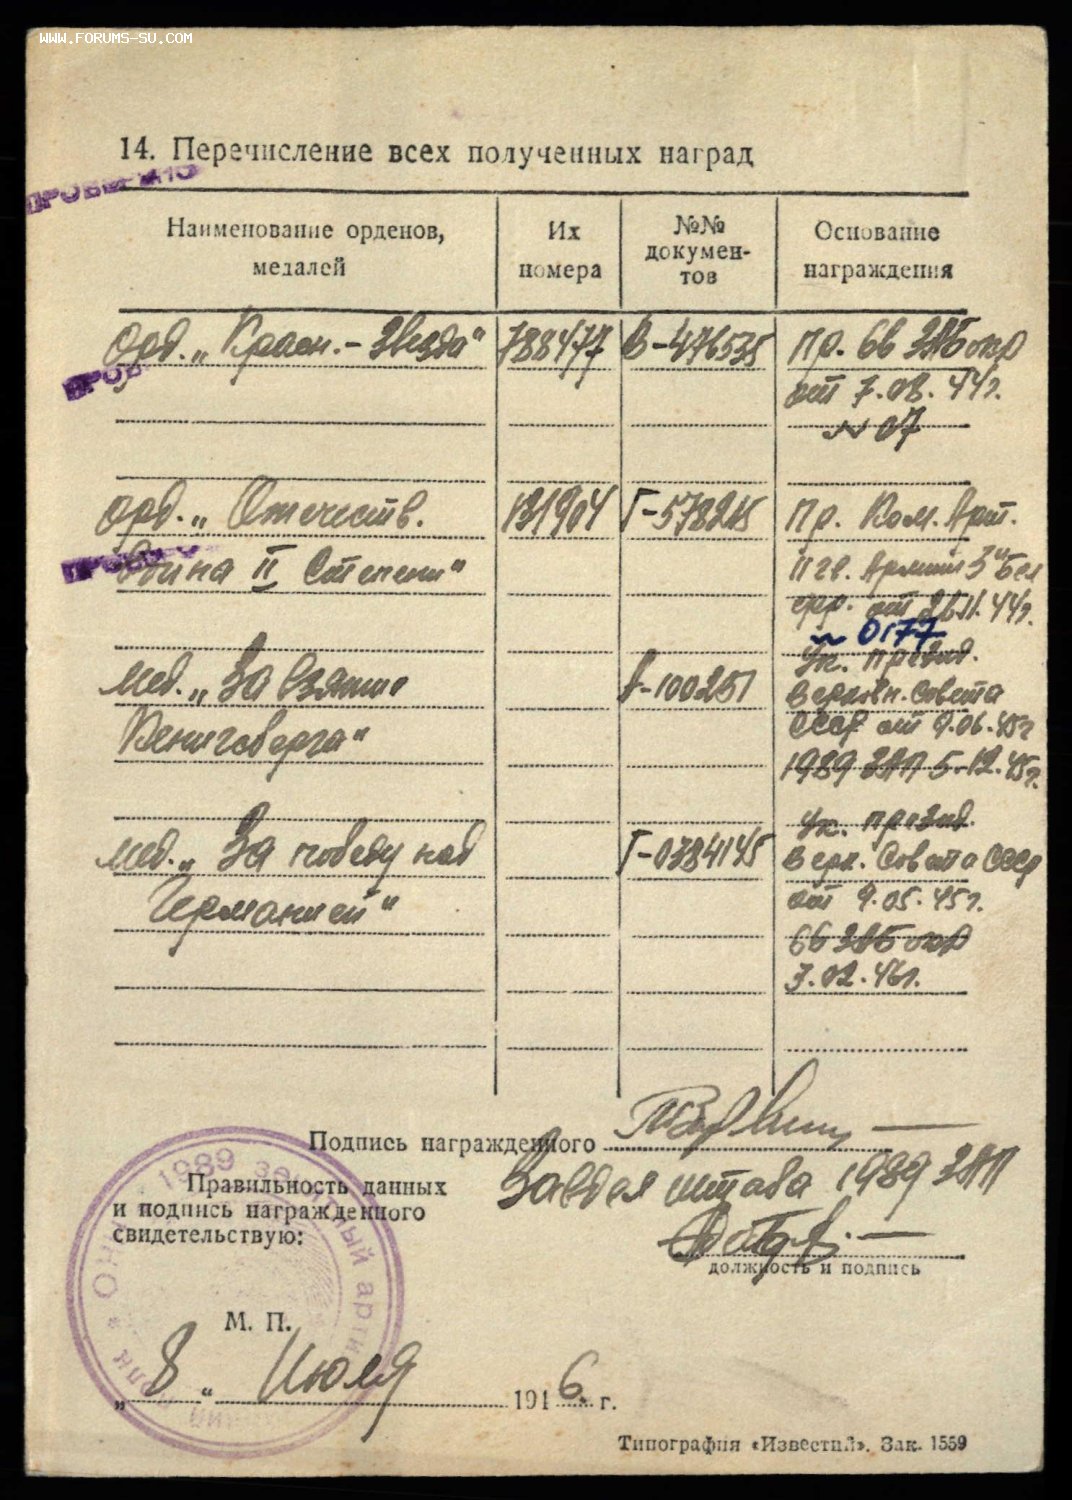 WWW.FORUMS-SU.COM
14. Перечисление всех полученных наград
ПРОВЕРЕНО
Наименование орденов, медалей
Их номера
№№ докумен-тов
Основание награждения
Орд. „Красн.-Звезда“ 788477 В-476535 Пр. 66 ЗАБ окр
ПРОВ
от 7.08.44г.
№ 07
Орд. „Отечеств. 131904 Г-578215 Пр. Ком. Арт.
ПРОВЕ
Война II Степени“ 11 гв. Армии 3го Бел
фр. от 26.11.44г.
№ 0177
Ук. Презид.
мед. „За взятие А-100251 Верховн. Совета
Кенигсберга“ СССР от 9.06.45г
1989 ЗАП 5-12.45г.
Ук. презид.
мед. „За победу над Г-0784145 Верх. Совета СССР
Германией“ от 9.05.45г.
66 ЗАБ окр
7.02.46г.
Подпись награжденного
Правильность данных
и подпись награжденного
свидетельствую:
Завдел штаба 1989 ЗАП
должность и подпись
1989 зенитный арти
полк
М. П.
„8“ Июля 1946 г.
Типография «Известий». Зак. 1559